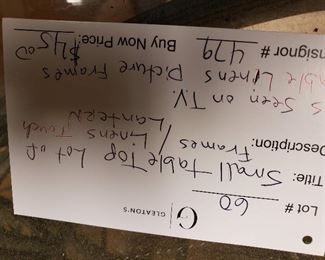 G | GLEATON'S
Lot # 60
Title: Small Table Top Lot of
Description: Linens Touch
Frames / Lantern
s Seen on T.V.
able Linens Picture Frames
nsignor # 479 Buy Now Price: $45.00